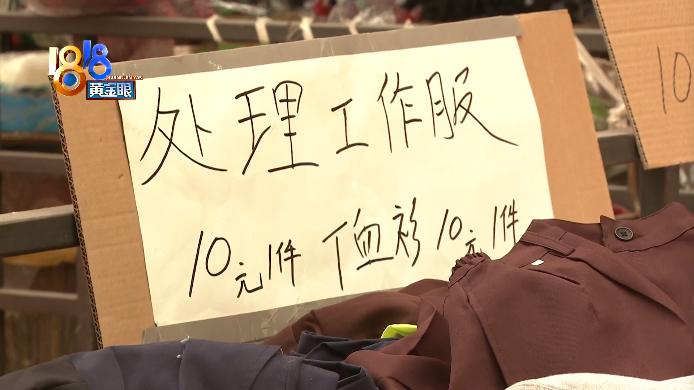 1818
黄金眼
处理工作服
10元1件 T恤衫10元1件
10